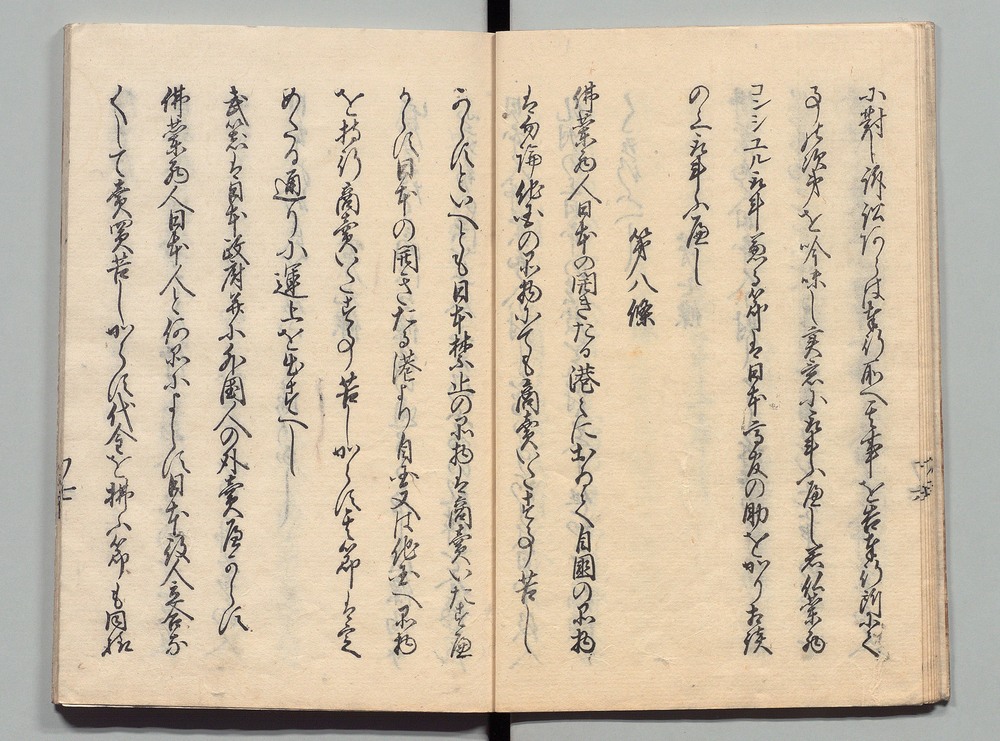 に對し訴訟あらは奉行所へ其事を告奉行所にて
事の次第を吟味し実意に取斗ふへし若佛蘭西
コンシユル取斗兼る節は日本高友の助をかり相談
の上取斗ふへし
第八條
佛蘭西人日本の開きたる港々におゐて自國の品物
は勿論他国の品物にても商賣いたす事苦し
からすといへとも日本禁止の品物は商賣いたすへ
からす日本の開きたる港より自国又は他国へ品物
を持行商賣いたす事苦しからす其節は定
めたる通りに運上を出すへし
武器は日本政府并に外國人の外賣へからす
佛蘭西人日本人と何品によらす日本役人立合な
くして賣買苦しからす代金を拂ふ節も同樣